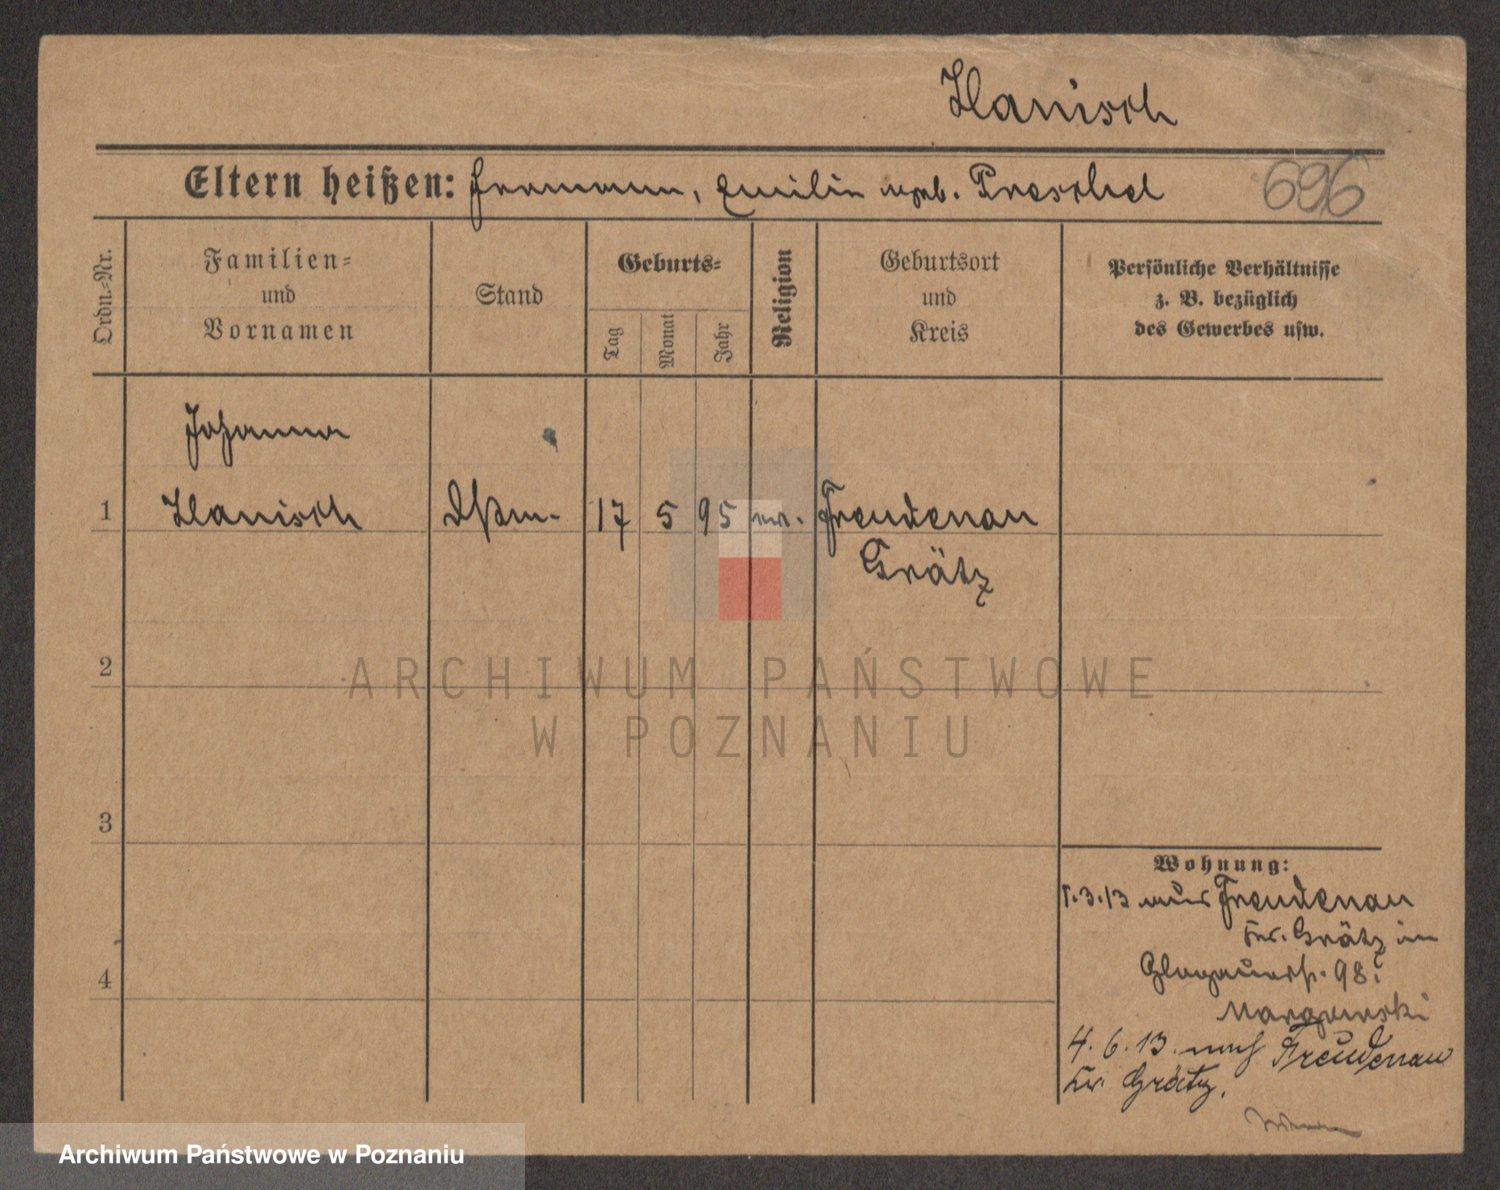 Hanisch
Eltern heißen: Hermann, Emilie geb. Preschel
696
Ordn.-Nr.
Familien-
und
Vornamen
Stand
Geburts-
Tag
Monat
Jahr
Religion
Geburtsort
und
Kreis
Persönliche Verhältnisse
z. B. bezüglich
des Gewerbes usw.
Johanna
1 Hanisch 17 5 95 ev. Freudenau
Grätz
2
3
4
Wohnung:
1.3.13 aus Freudenau
Kr. Grätz in
Glogauerstr. 98.
4.6.13 nach Freudenau
Kr. Grätz.
ARCHIWUM PAŃSTWOWE
W POZNANIU
Archiwum Państwowe w Poznaniu